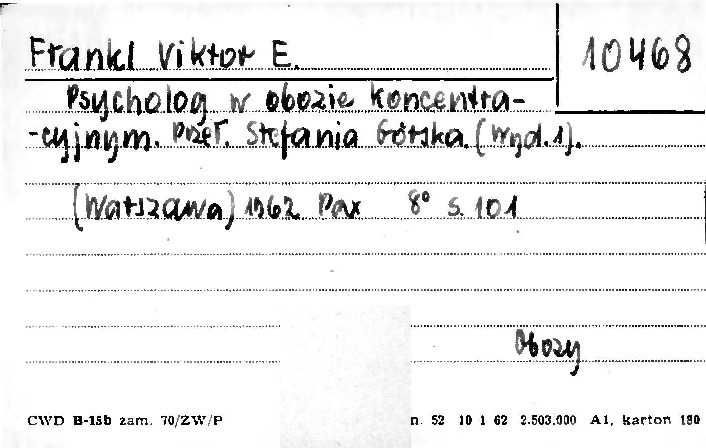 Frankl Viktor E.
10468
Psycholog w obozie koncentra-
-cyjnym. Przeł. Stefania Górska. (Wyd. 1).
(Warszawa) 1962 Pax 8° s. 101
Obozy
CWD B-15b zam. 70/ZW/P n. 52 10 1 62 2.503.000 A1, karton 180